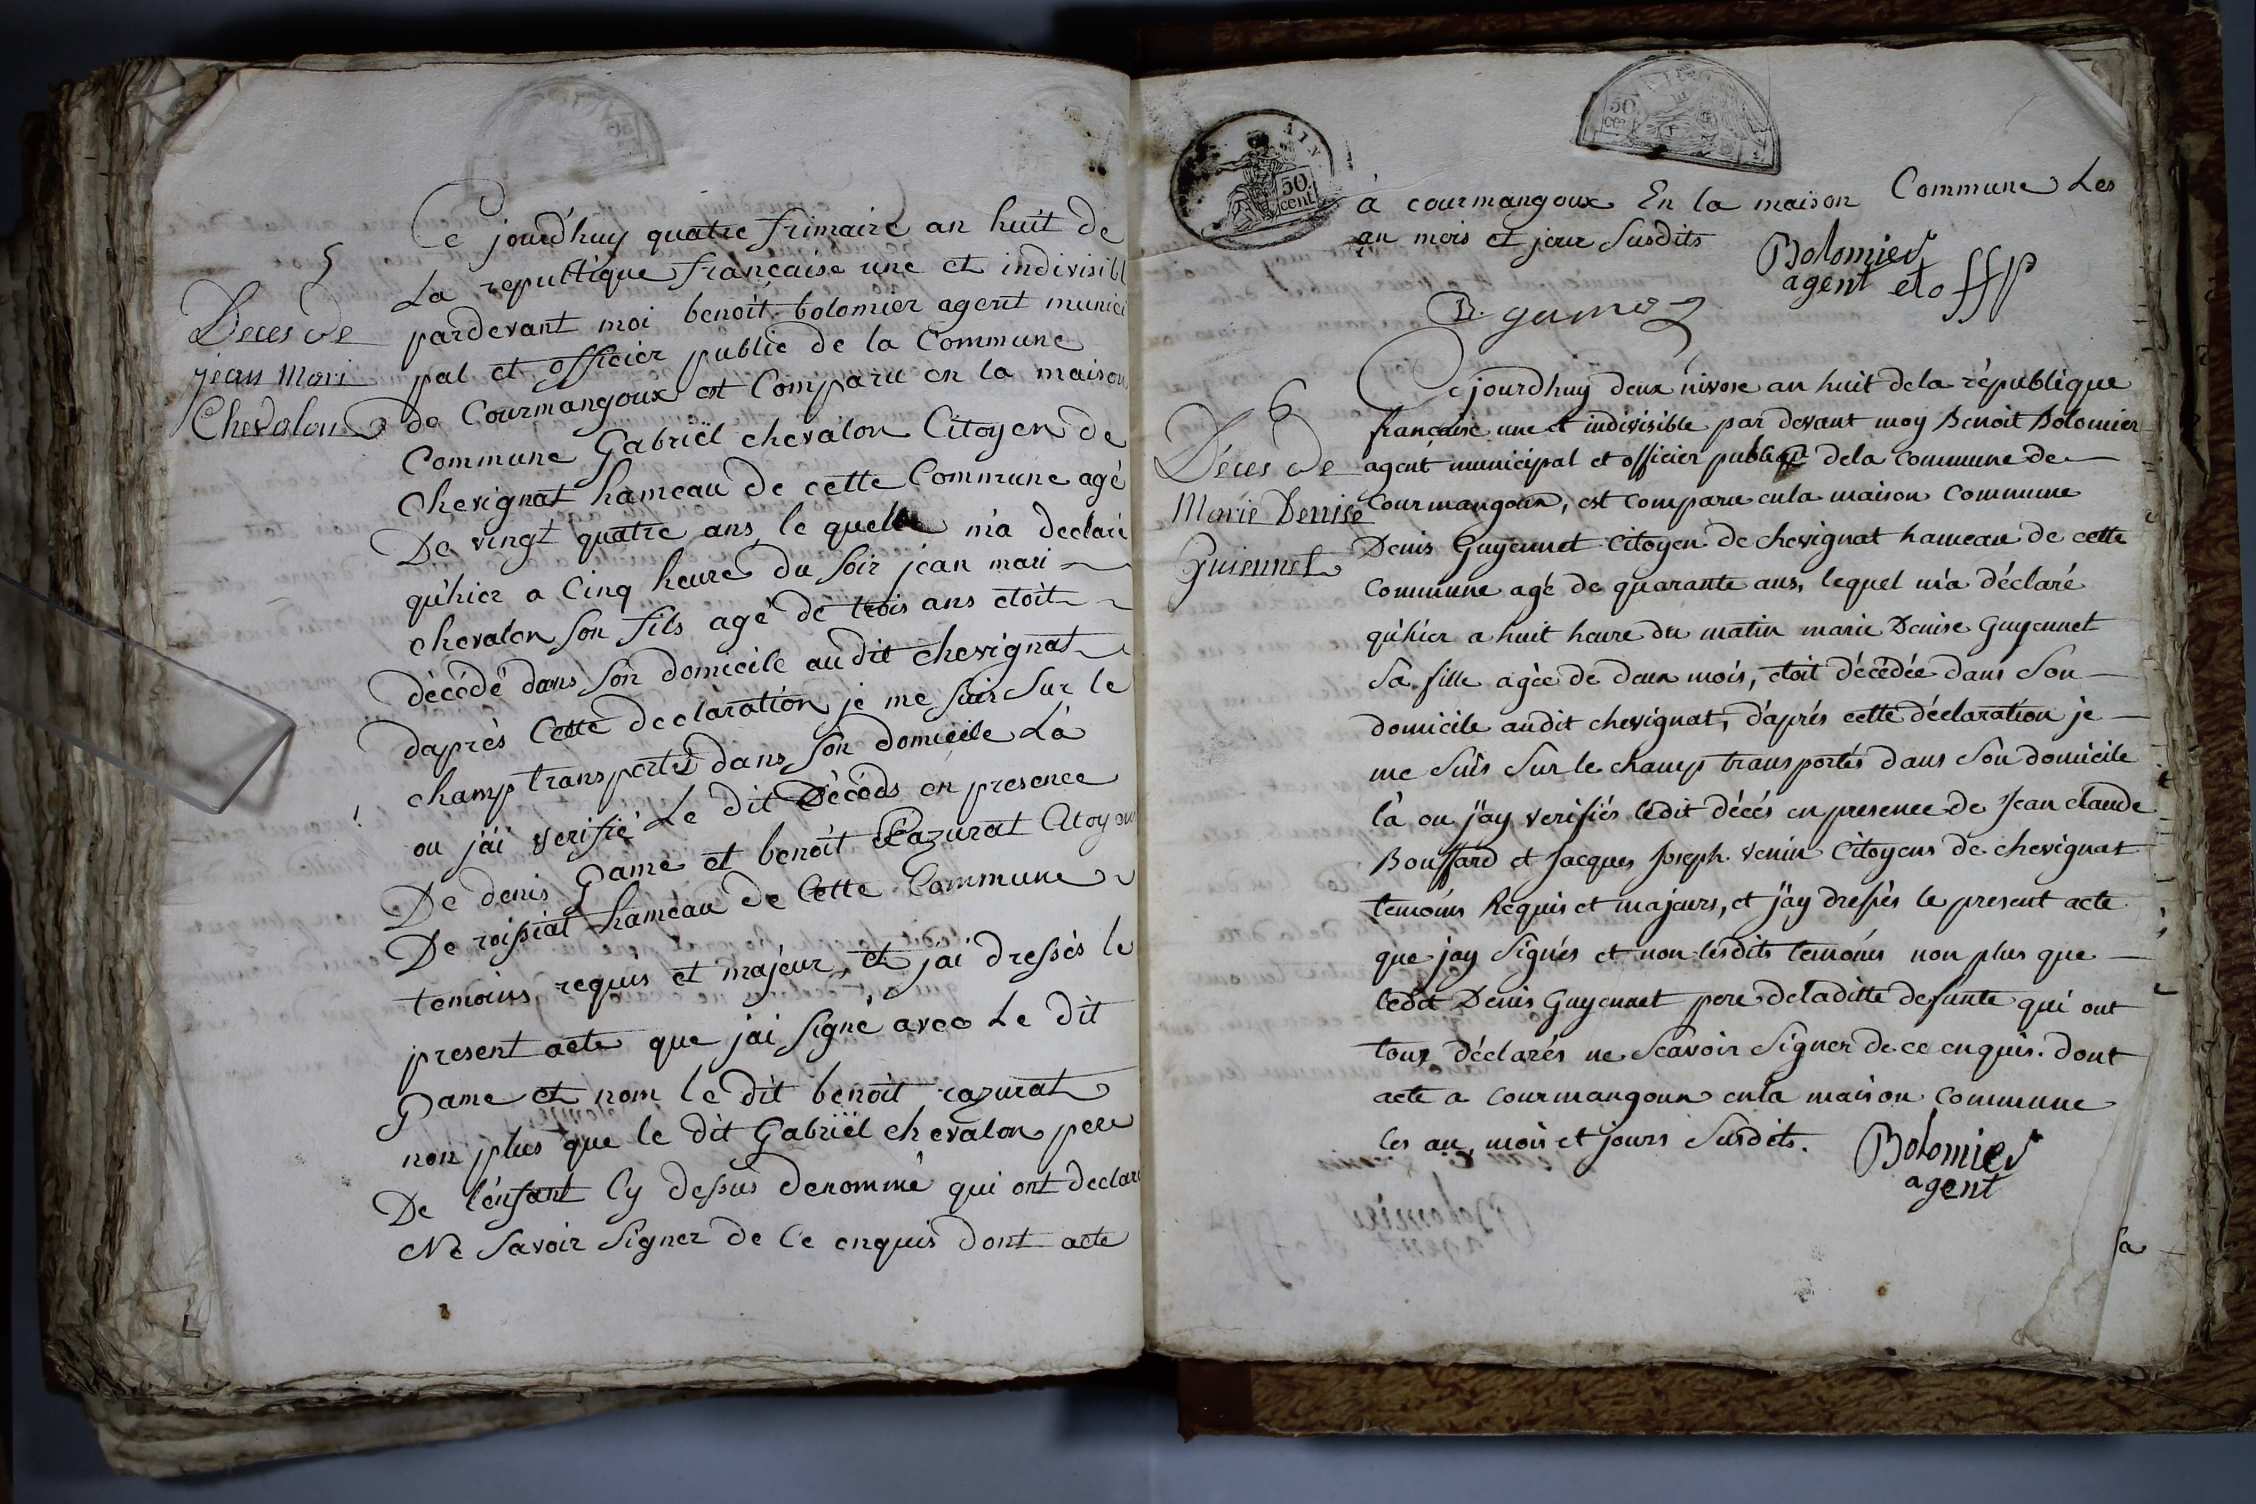 5
Deces de
jean Mari
Chevalon
Ce jourd'huy quatre frimaire an huit de
La republique française une et indivisibl
pardevant moi benoit bolomier agent munici
pal et officier public de la Commune
de Courmangoux est Comparu en la maison
Commune Gabriël chevalon Citoyen de
Chevignat hameau de cette Commune agé
De vingt quatre ans, le quel m'a declaré
qu'hier a Cinq heure du soir jean mari
chevalon son fils agé de trois ans etoit
décédé dans son domicile au dit chevignat
d'après Cette declaration je me suis sur le
champ transportés dans son domicile Là
ou j'ai verifié Le dit Décéds en presence
De denis Game et benoit Razurat Citoyens
De roissiat hameau de Cette Commune
temoins requis et majeur, et j'ai dressés le
present acte que j'ai signé avec Le dit
Game et nom le dit benoit razurat
non plus que le dit Gabriël chevalon pere
De l'enfant Cy dessus denommé qui ont declaré
Ne savoir signer de Ce enquis dont acte
AIN
50
cent
50
à courmangoux En la maison Commune Les
an mois et jour susdits
Bolomier
agent et off p
D. game
6
Déces de
Marie Denise
Guiennet
Cejourdhuy deux nivose an huit de la république
française une et indivisible par devant moy Benoit Bolomier
agent municipal et officier public dela commune de
Courmangoux, est comparu en la maison commune
Denis Guyennet citoyen de chevignat hameau de cette
commune agé de quarante ans, lequel m'a déclaré
qu'hier a huit heure du matin marie Denise Guyennet
sa fille agée de deux mois, étoit décédée dans son
domicile audit chevignat, d'aprés cette déclaration je
me suis sur le champ transportés dans son domicile
là ou j'ay verifiés ledit décés en presence de Jean claude
Bouffard et Jacques Joseph venin Citoyens de chevignat
temoins Requis et majeurs, et j'ay dressés le present acte
que jay signés et non lesdits temoins non plus que
ledit Denis Guyennet pere de laditte defunte qui ont
tous déclarés ne scavoir signer de ce enquis. dont
acte a courmangoux en la maison commune
les an, mois et jours susdits.
Bolomier
agent
sa